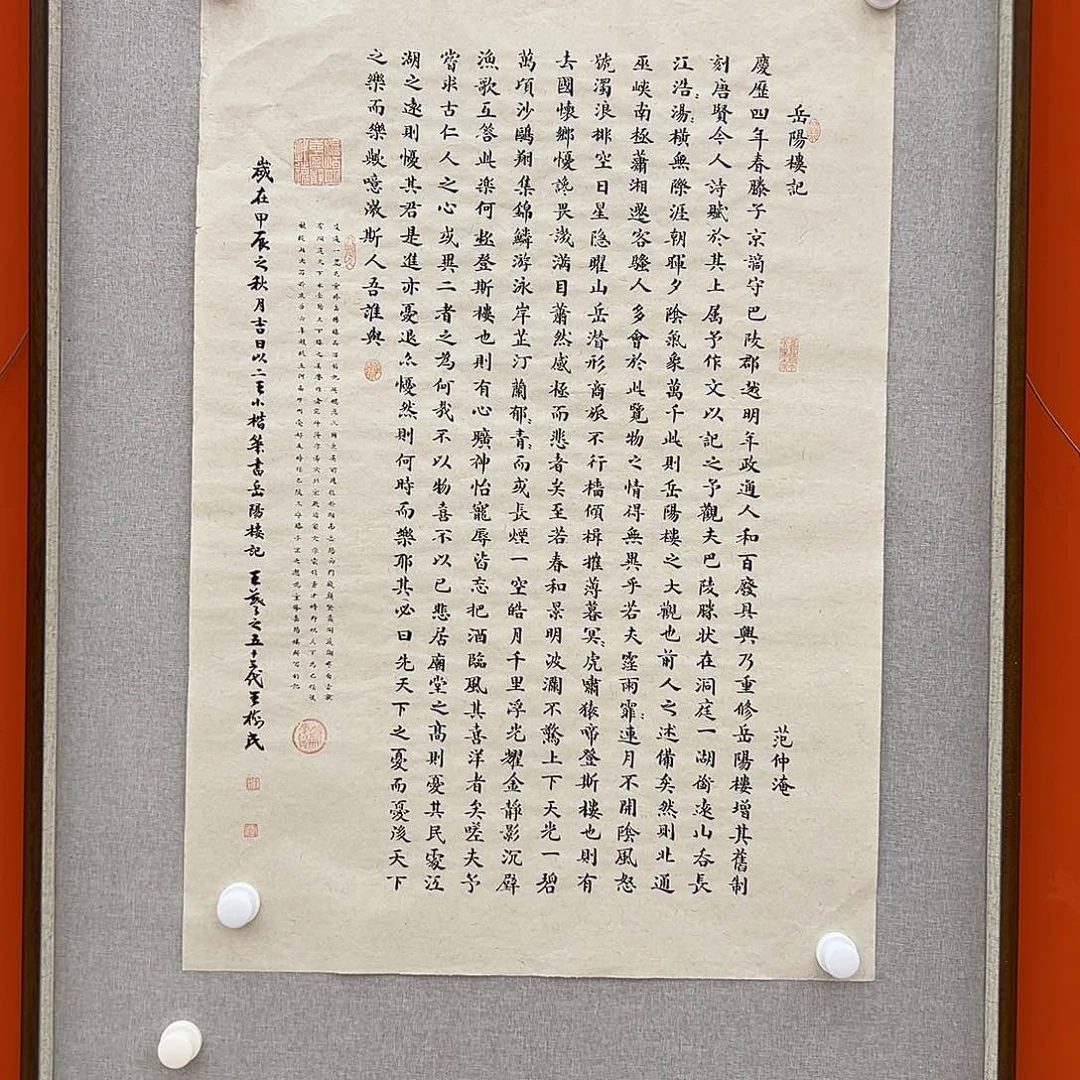 岳陽樓記 范仲淹
慶歷四年春滕子京謫守巴陵郡越明年政通人和百廢具興乃重修岳陽樓增其舊制
刻唐賢今人詩賦於其上属予作文以記之予觀夫巴陵勝状在洞庭一湖銜遠山吞長
江浩〻湯〻橫無際涯朝暉夕陰氣象萬千此則岳陽樓之大觀也前人之述備矣然則北通
巫峽南極瀟湘遷客騷人多會於此覽物之情得無異乎若夫霪雨霏〻連月不開陰風怒
號濁浪排空日星隐曜山岳潛形商旅不行檣傾楫摧薄暮冥〻虎嘯猿啼登斯樓也則有
去國懷鄉憂讒畏譏滿目蕭然感極而悲者矣至若春和景明波瀾不驚上下天光一碧
萬頃沙鷗翔集錦鱗游泳岸芷汀蘭郁〻青〻而或長煙一空皓月千里浮光耀金靜影沉璧
漁歌互答此樂何極登斯樓也則有心曠神怡寵辱皆忘把酒臨風其喜洋者矣嗟夫予
嘗求古仁人之心或異二者之為何哉不以物喜不以己悲居廟堂之高則憂其民處江
湖之遠則憂其君是進亦憂退亦憂然則何時而樂耶其必曰先天下之憂而憂後天下
之樂而樂歟噫微斯人吾誰與
歲在甲辰之秋月吉日以二王小楷筆書岳陽樓記 王羲之五十三代王民